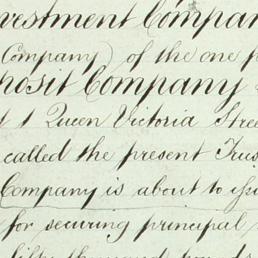 vestment Compan
Company) of the one p
posit Company
Queen Victoria Stree
called the present Trus
Company is about to issu
for securing principal
fifty thousand pounds